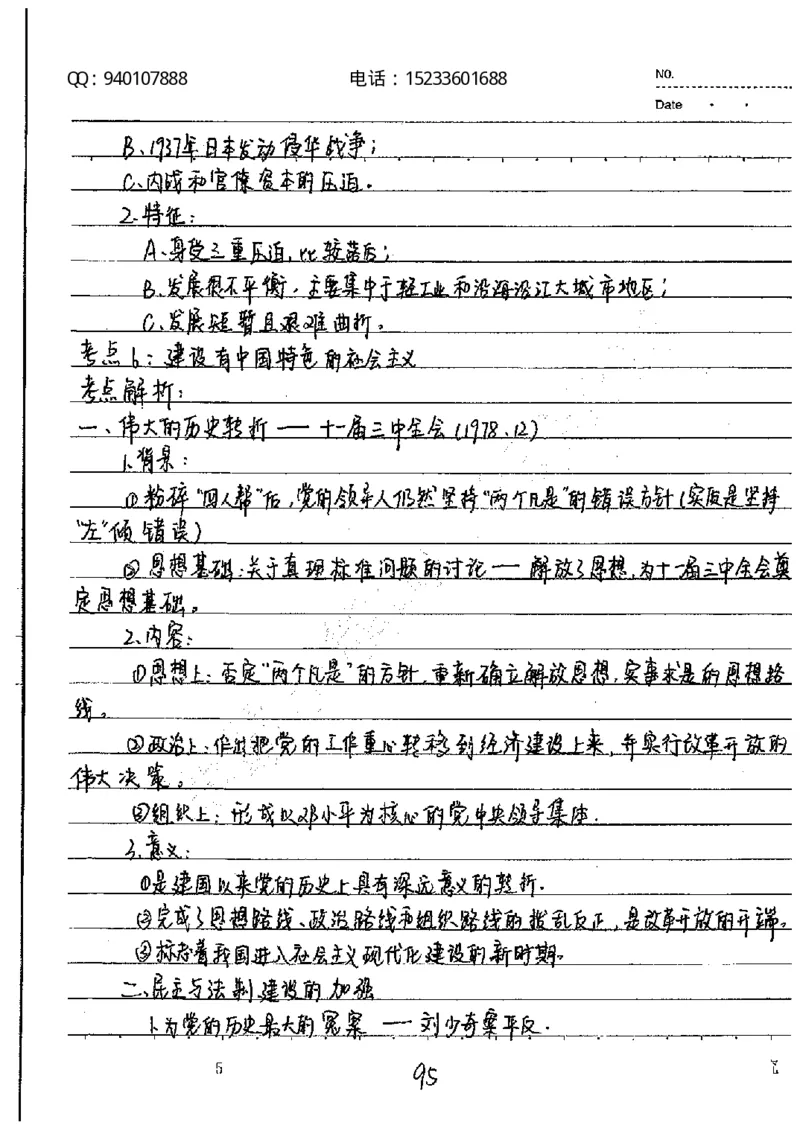 QQ：940107888 电话：15233601688 NO.
Date
B、1937年日本发动侵华战争；
C、内战和官僚资本的压迫。
2、特征：
A、身受三重压迫，比较落后；
B、发展很不平衡，主要集中于轻工业和沿海沿江大城市地区；
C、发展短暂且艰难曲折。
考点6：建设有中国特色的社会主义
考点解析：
一、伟大的历史转折——十一届三中全会（1978.12）
1、背景：
①粉碎“四人帮”后，党的领导人仍然坚持“两个凡是”的错误方针（实质是坚持
“左”倾错误）
②思想基础：关于真理标准问题的讨论——解放了思想，为十一届三中全会奠
定思想基础。
2、内容：
①思想上：否定“两个凡是”的方针，重新确立解放思想，实事求是的思想路
线。
②政治上：作出把党的工作重心转移到经济建设上来，并实行改革开放的
伟大决策。
③组织上：形成以邓小平为核心的党中央领导集体．
3、意义：
①是建国以来党的历史上具有深远意义的转折．
②完成了思想路线、政治路线和组织路线的拨乱反正，是改革开放的开端。
③标志着我国进入社会主义现代化建设的新时期。
二、民主与法制建设的加强
1、为党的历史最大的冤案——刘少奇案平反．
5 95